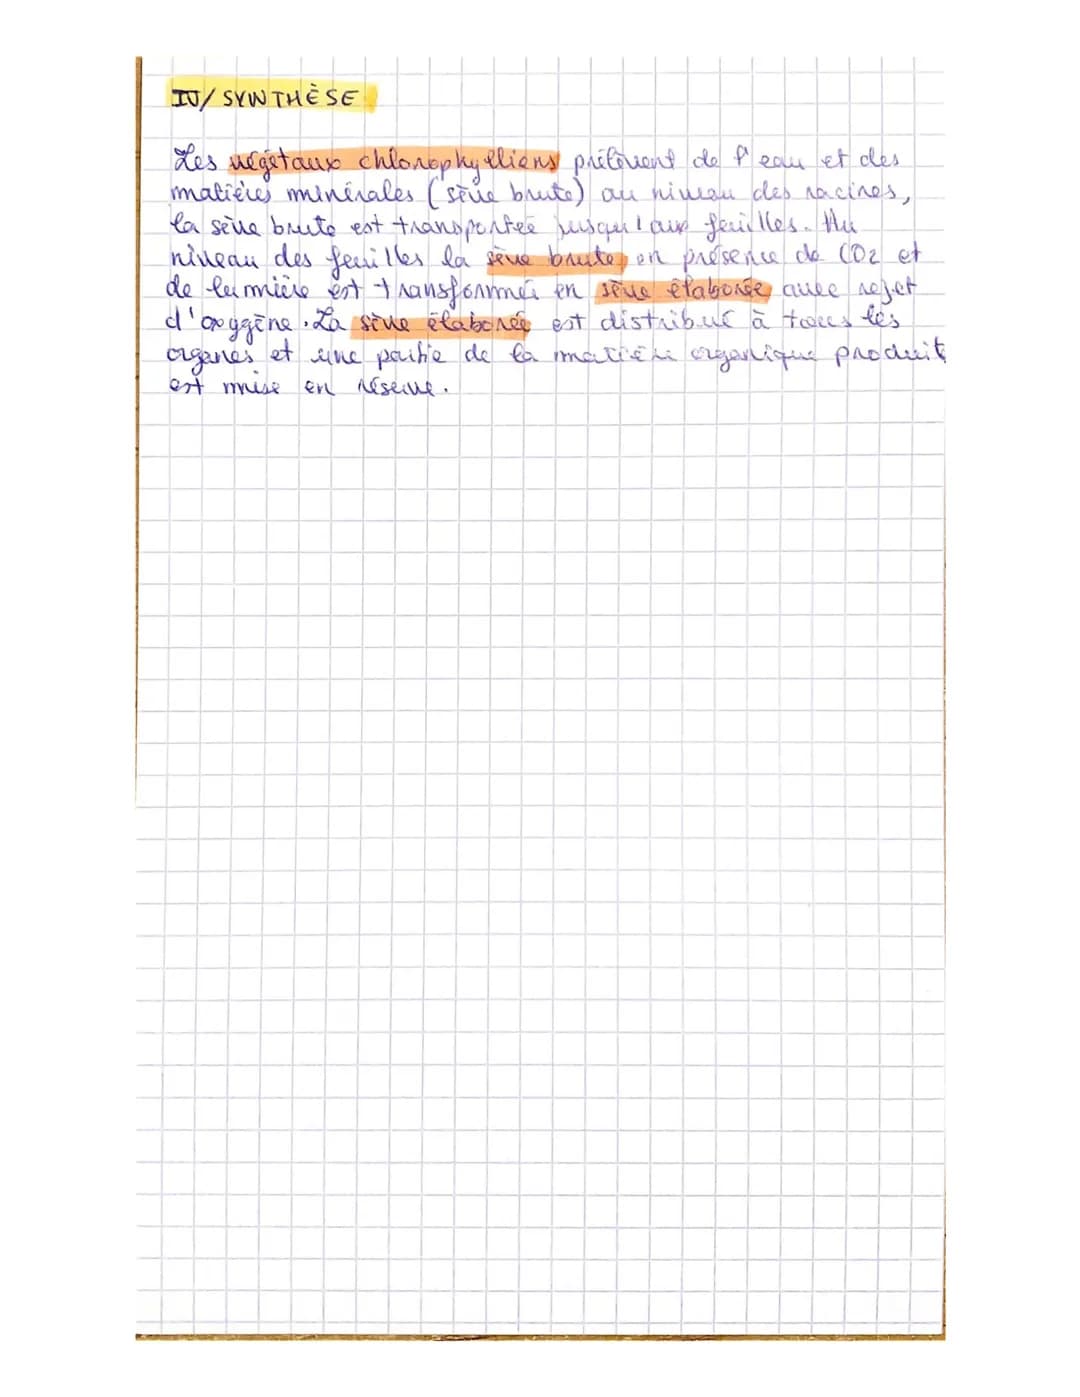 IV/ SYNTHÈSE
Les végétaux chlorophylliens prélèvent de l'eau et des
matières minérales (sève brute) au niveau des racines,
la sève brute est transportée jusqu'aux feuilles. Au
niveau des feuilles la sève brute, en présence de CO2 et
de lumière est transformée en sève élaborée avec rejet
d'oxygène. La sève élaborée est distribué à tous les
organes et une partie de la matière organique produit
est mise en réserve.